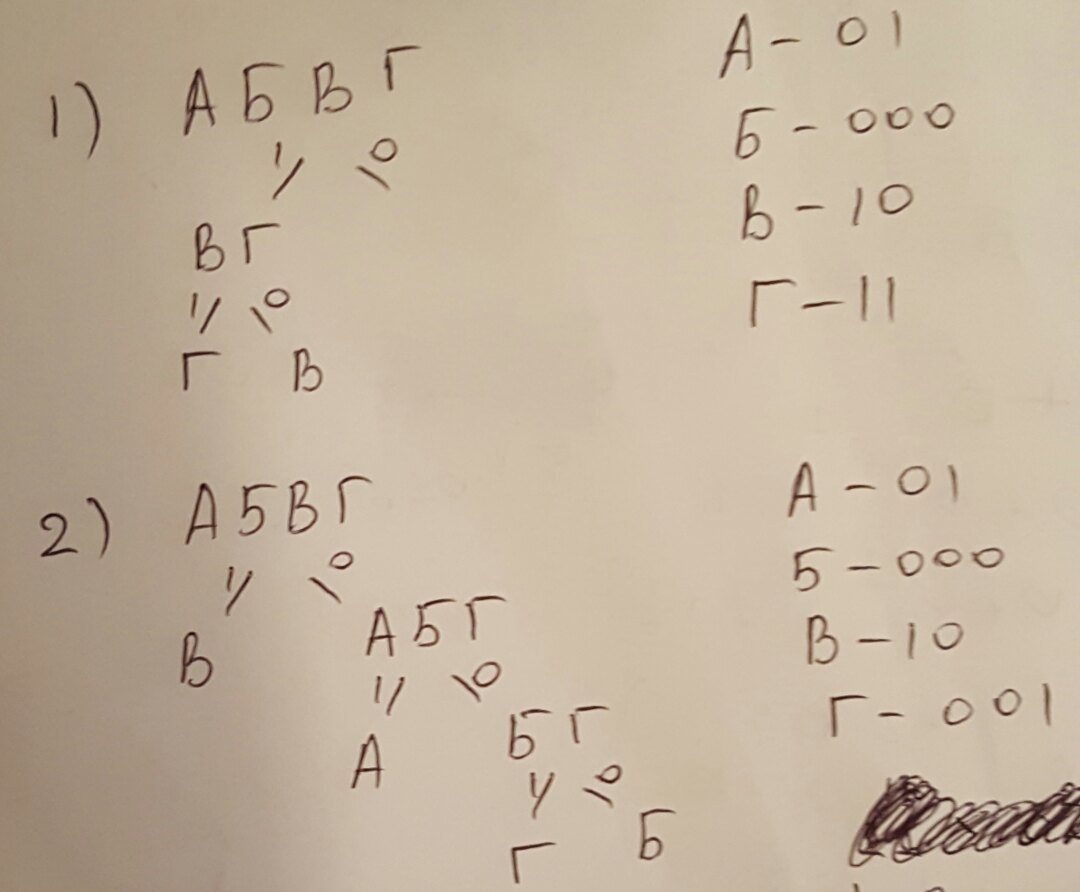 1) А Б В Г
1/ \0
В Г
1/ \0
Г В
А - 01
Б - 000
В - 10
Г - 11
2) А Б В Г
1/ \0
В А Б Г
1/ \0
А Б Г
1/ \0
Г Б
А - 01
Б - 000
В - 10
Г - 001